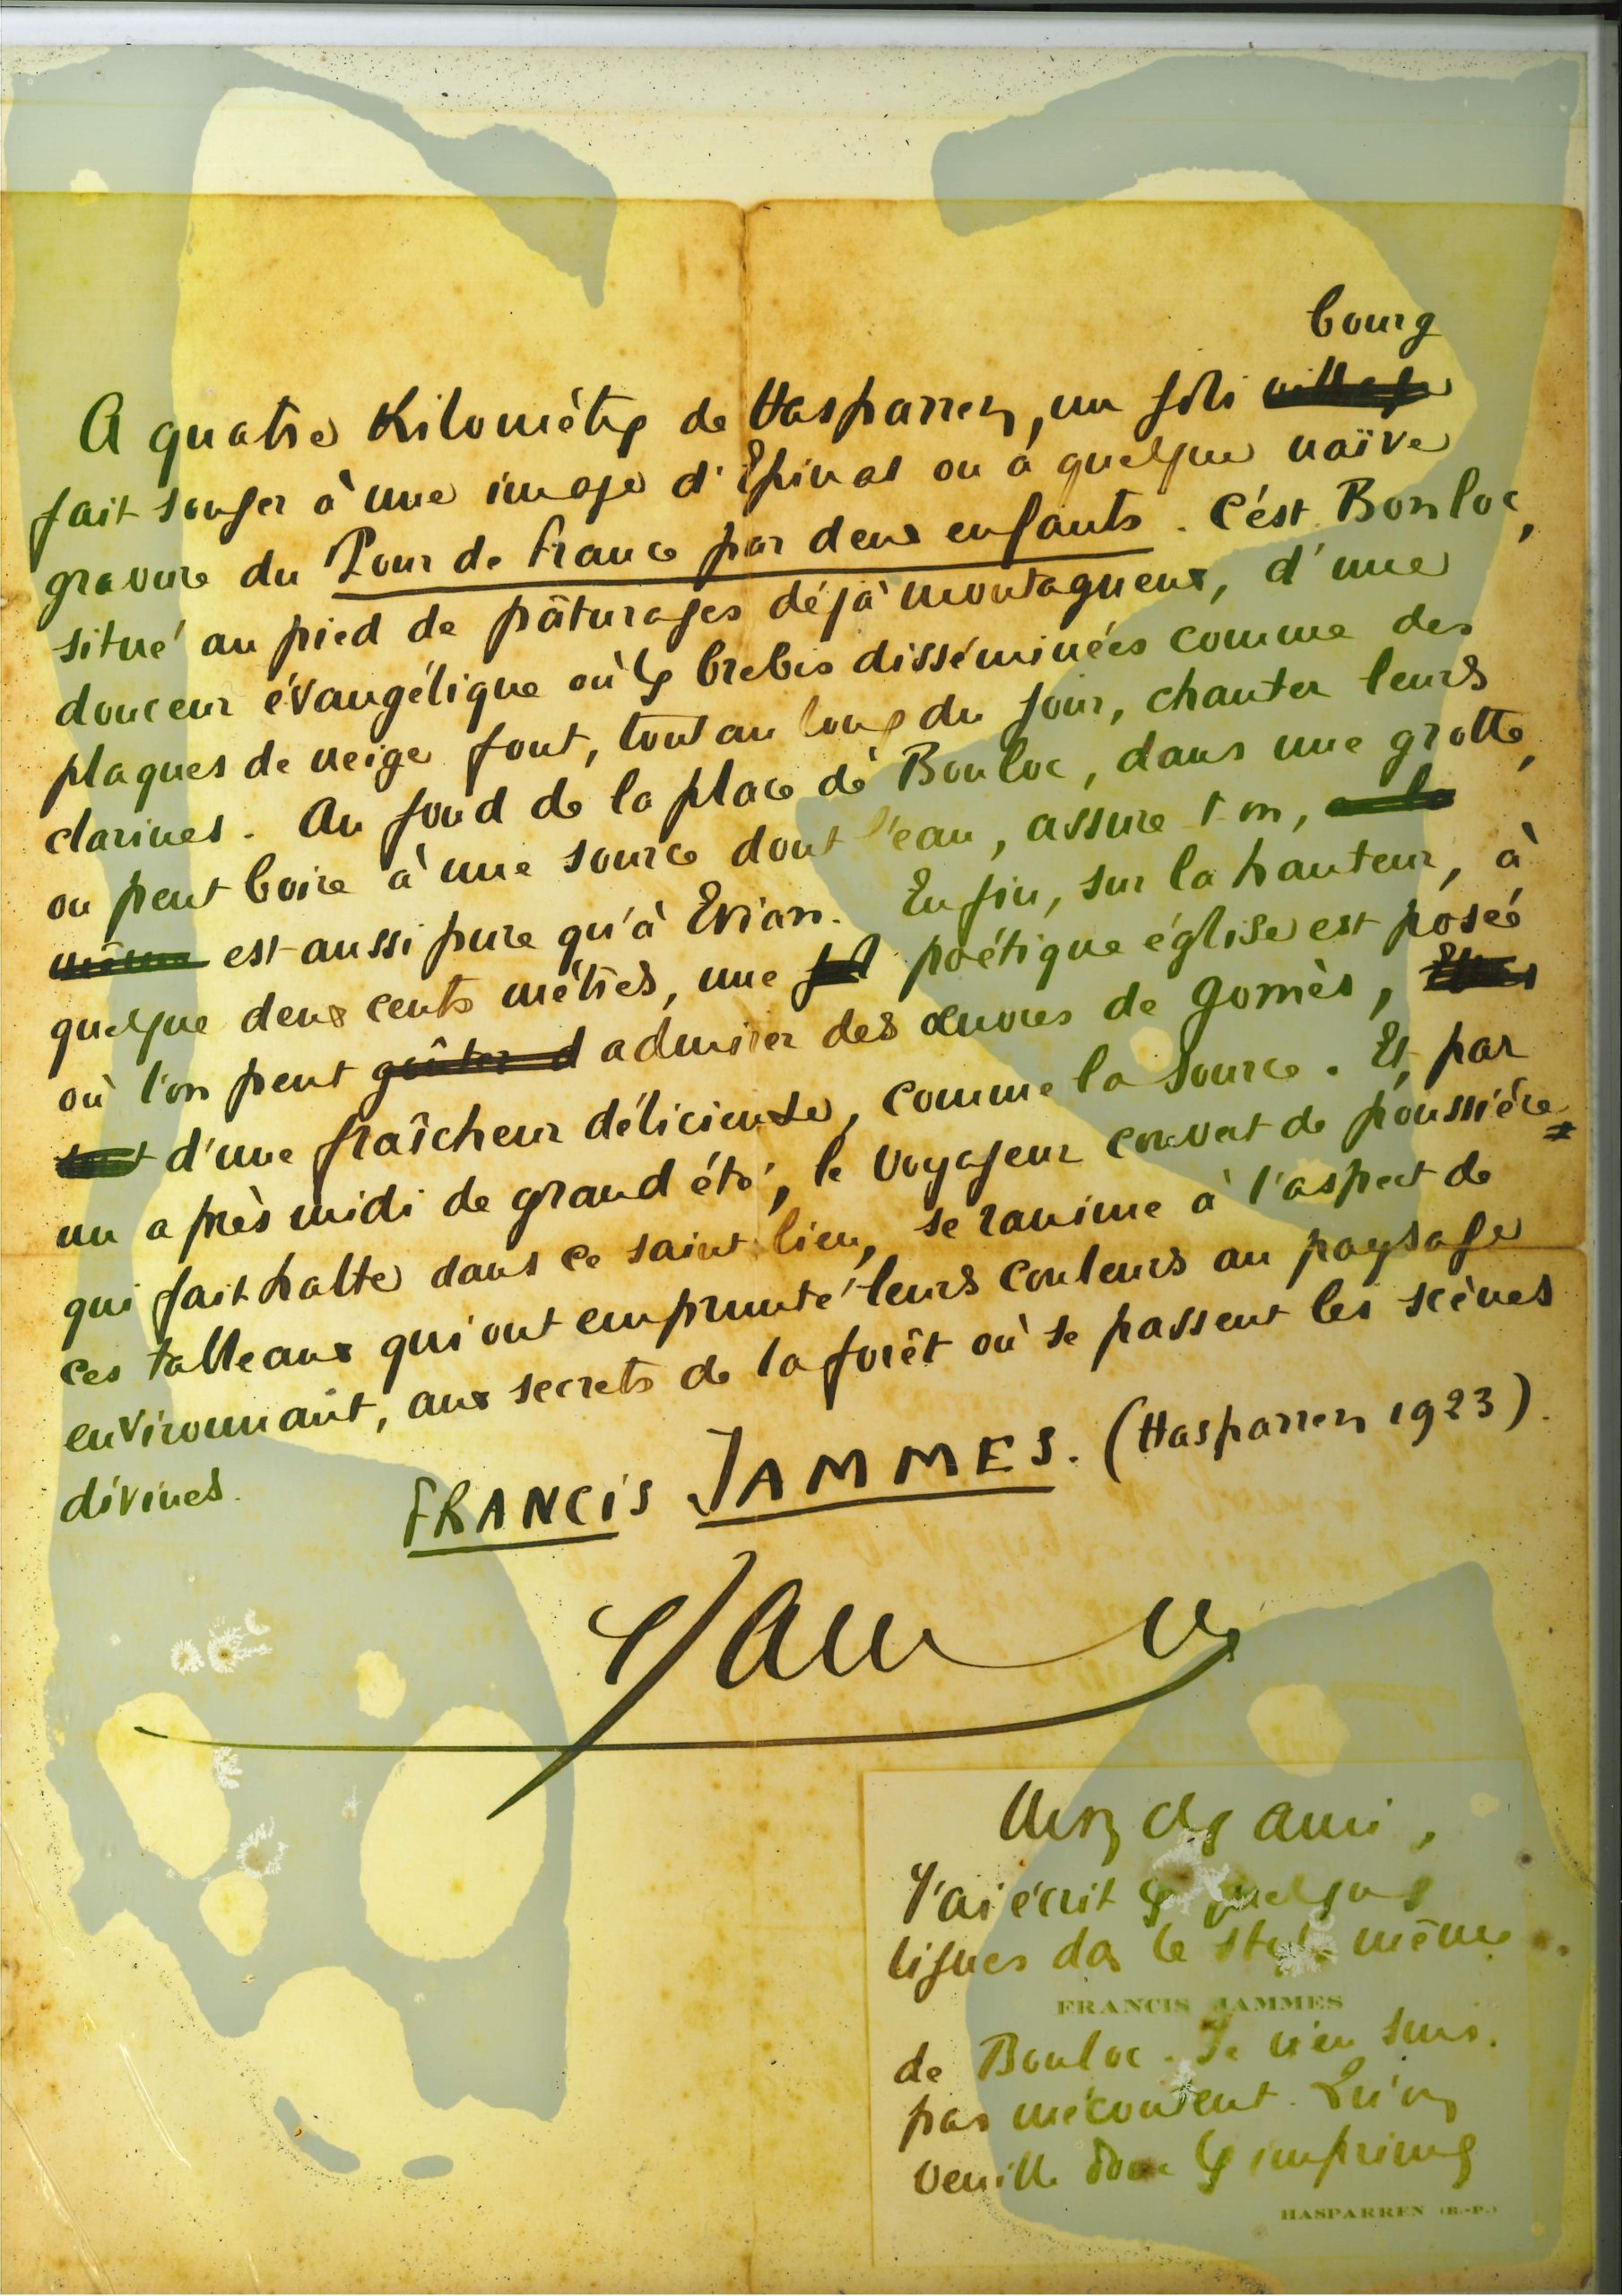 bourg
A quatre Kilomètres de Hasparren, un joli village
fait songer à une image d'Epinal ou à quelque naïve
gravure du Tour de France par deux enfants. C'est Bonloc,
situé au pied de pâturages déjà montagneux, d'une
douceur évangélique où les brebis disséminées comme des
plaques de neige font, tout au long du jour, chanter leurs
clarines. Au fond de la place de Bonloc, dans une grotte,
on peut boire à une source dont l'eau, assure t on,
même est aussi pure qu'à Evian. Enfin, sur la hauteur, à
quelque deux cents mètres, une poétique église est posée
où l'on peut goûter d admirer des œuvres de Gomès,
tout d'une fraîcheur délicieuse, comme la source. Et, par
un après midi de grand été, le voyageur couvert de poussière
qui fait halte dans ce saint lieu, se ranime à l'aspect de
ces tableaux qui ont emprunté leurs couleurs au paysage
environnant, aux secrets de la forêt où se passent les scènes
divines.
FRANCIS JAMMES. (Hasparren 1923).
Jammes
Mon cher ami,
J'ai écrit ces quelques
lignes dans le style même
FRANCIS JAMMES
de Bonloc. Je n'en suis
pas mécontent. Qu'on
veuille donc les imprimer
HASPARREN (B.-P.)